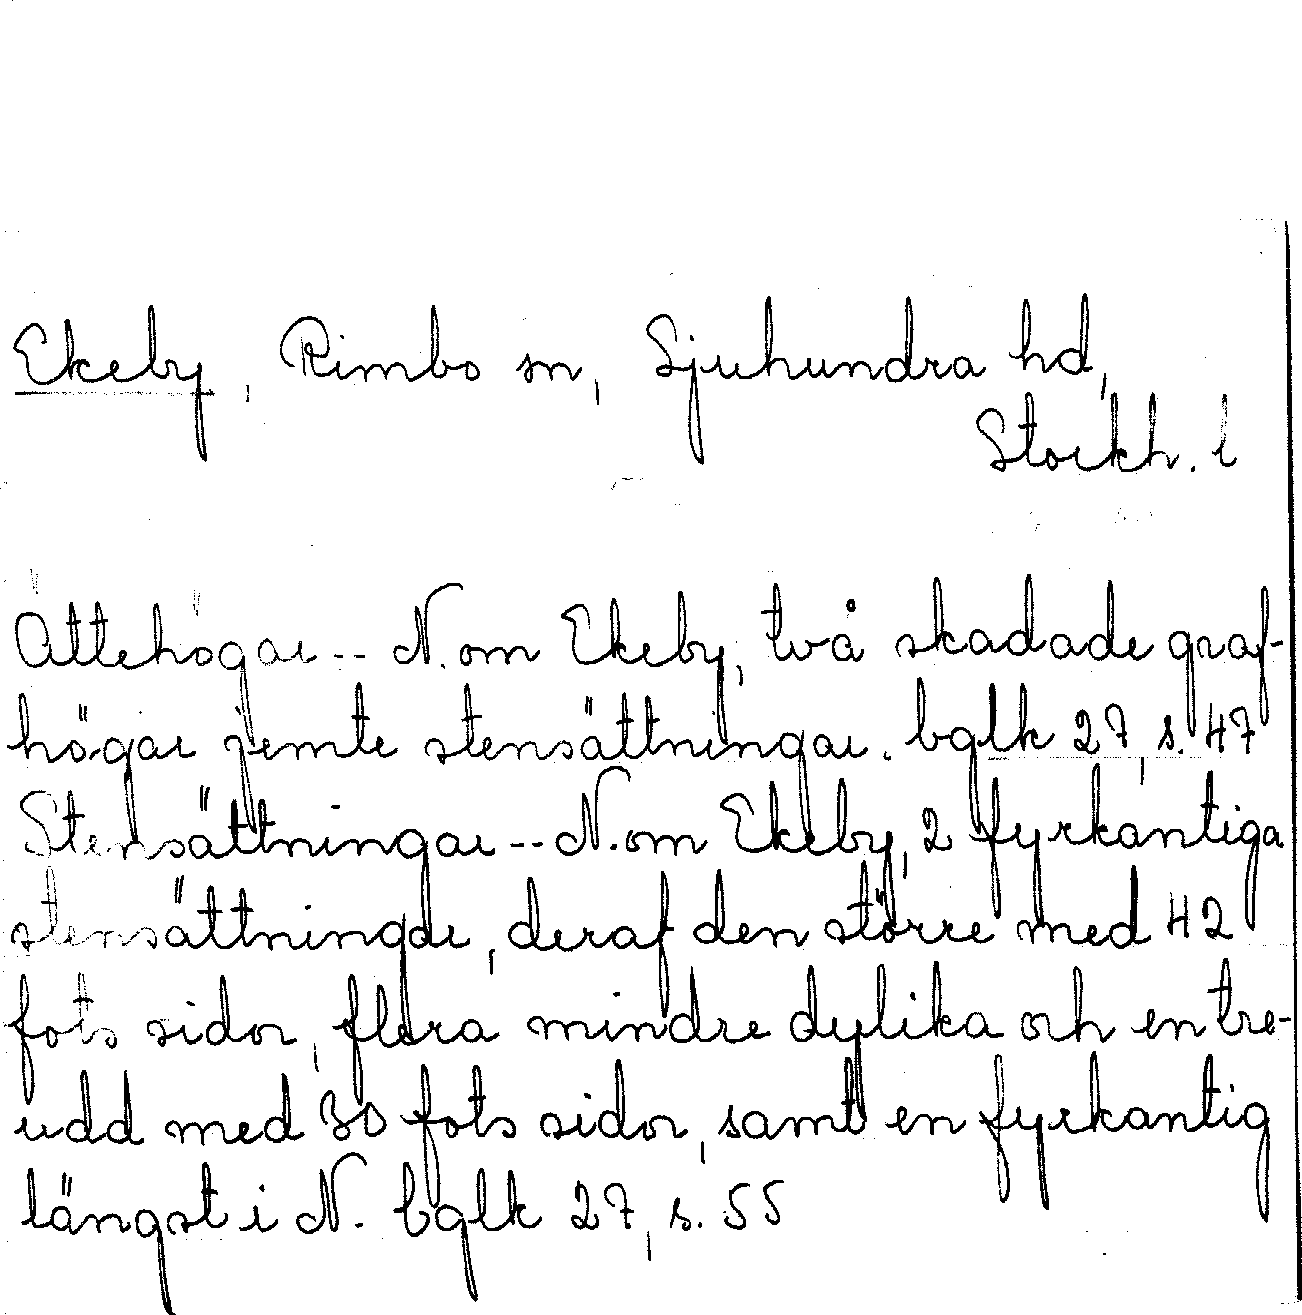 Ekeby, Rimbo sn, Sjuhundra hd,
Stockh. l
Ättehögar -- N. om Ekeby, två skadade graf-
högar jemte stensättningar. bglk 27, s. 47
Stensättningar -- N. om Ekeby, 2 fyrkantiga
stensättningar, deraf den större med 42
fots sidor, flera mindre dylika och en tre-
udd med 30 fots sidor, samt en fyrkantig
längst i N. bglk 27, s. 55